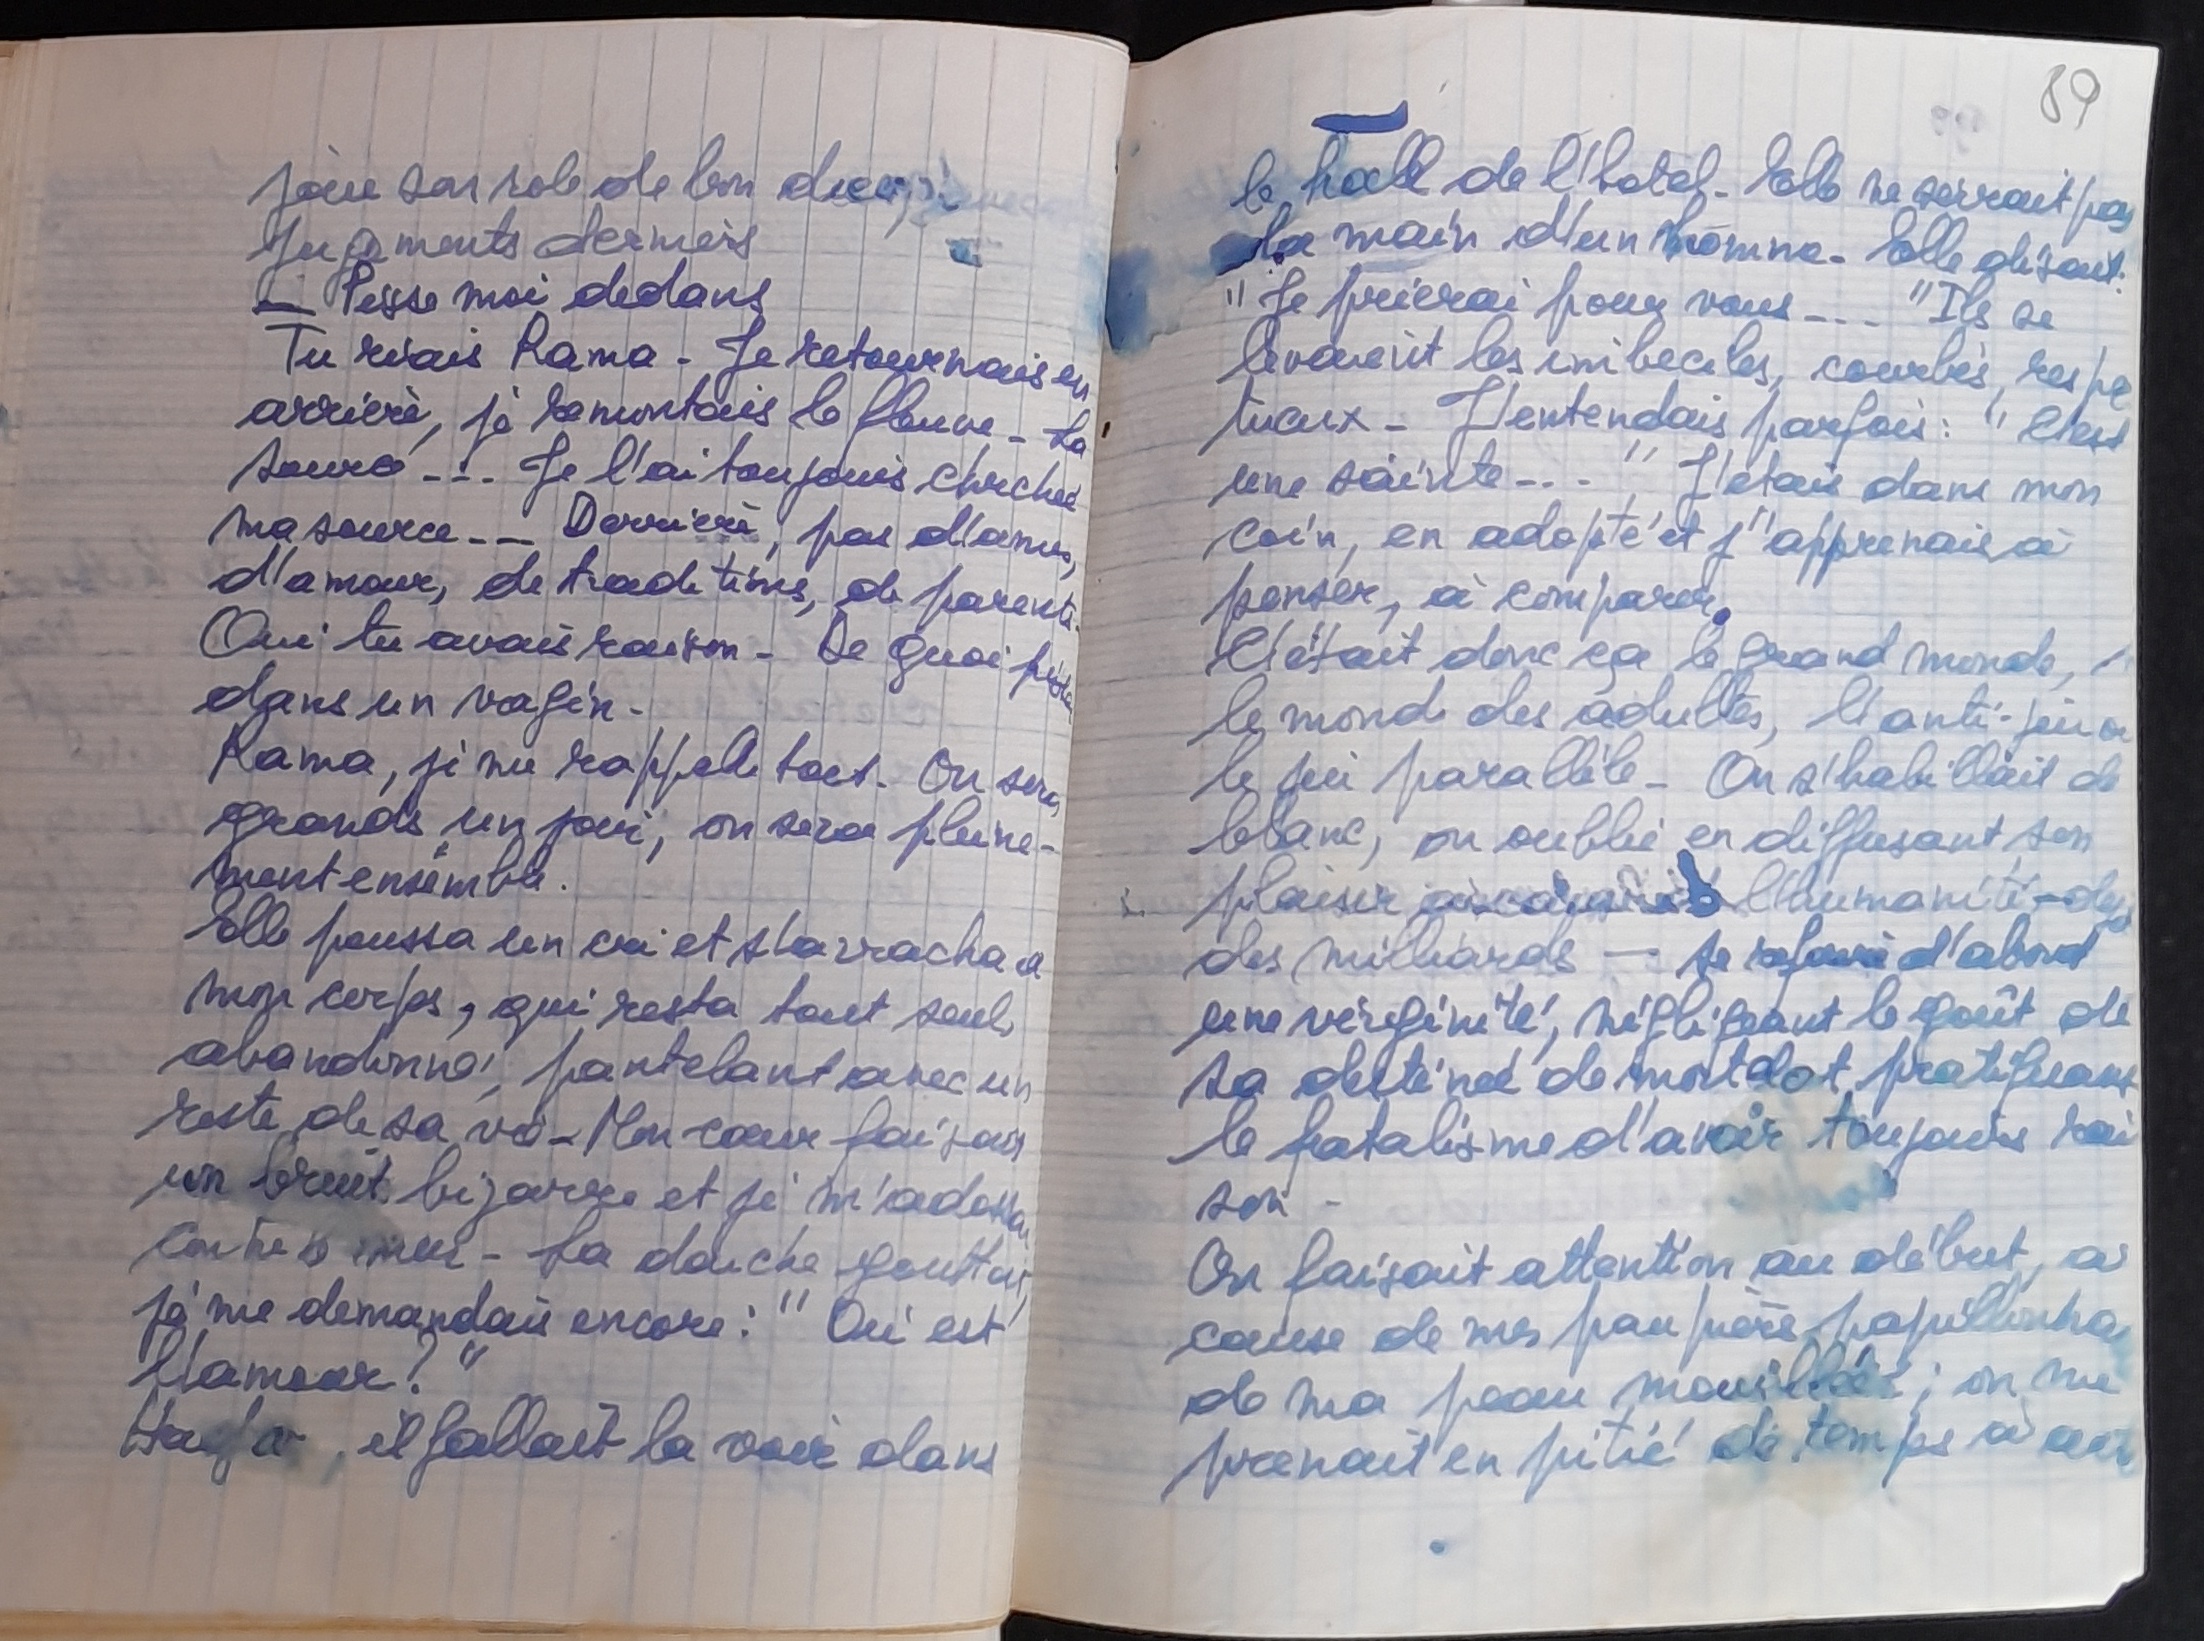 joue son role de bon
jugements derniers
— Pisse moi dedans
Tu riais Rama - Je retournais en
arrière, je remontais le fleuve - La
source --- Je l'ai toujours cherchée
ma source -- Derrière, pas d'amis,
d'amour, de traditions, de parents.
Oui tu avais raison - De quoi pisser
dans un vagin -
Rama, je me rappelle tout - On sera
grands un jour, on sera pleine-
ment ensemble.
Elle poussa un cri et s'arracha à
mon corps, qui resta tout seul,
abandonné, pantelant avec un
reste de sa vie - Mon cœur faisait
un bruit bizarre et je m'adossai
contre le mur - La douche gouttait,
je me demandais encore : " Où est
l'amour ? "
, il fallait la voir dans
89
le hall de l'hotel - Elle ne serrait pas
la main d'un homme - Elle disait :
" Je prierai pour vous --- " Ils se
levaient les imbeciles, courbés, respec
tueux - J'entendais parfois : " C'est
une sainte --- " J'étais dans mon
coin, en adopté et j'apprenais à
penser, à comparer.
C'était donc ça le grand monde,
le monde des adultes, l'anti-jeu ou
le jeu parallèle - On s'habillait de
blanc, on oublie en diffusant son
plaisir l'humanité -
des milliards — se d'abord
une virginité, négligeant le goût de
sa destinée de mort pratiquant
le fatalisme d'avoir toujours rai
son -
On faisait attention au début, à
cause de mes paupière
de ma peau mouillée ; on me
prenait en pitié de temps à autre